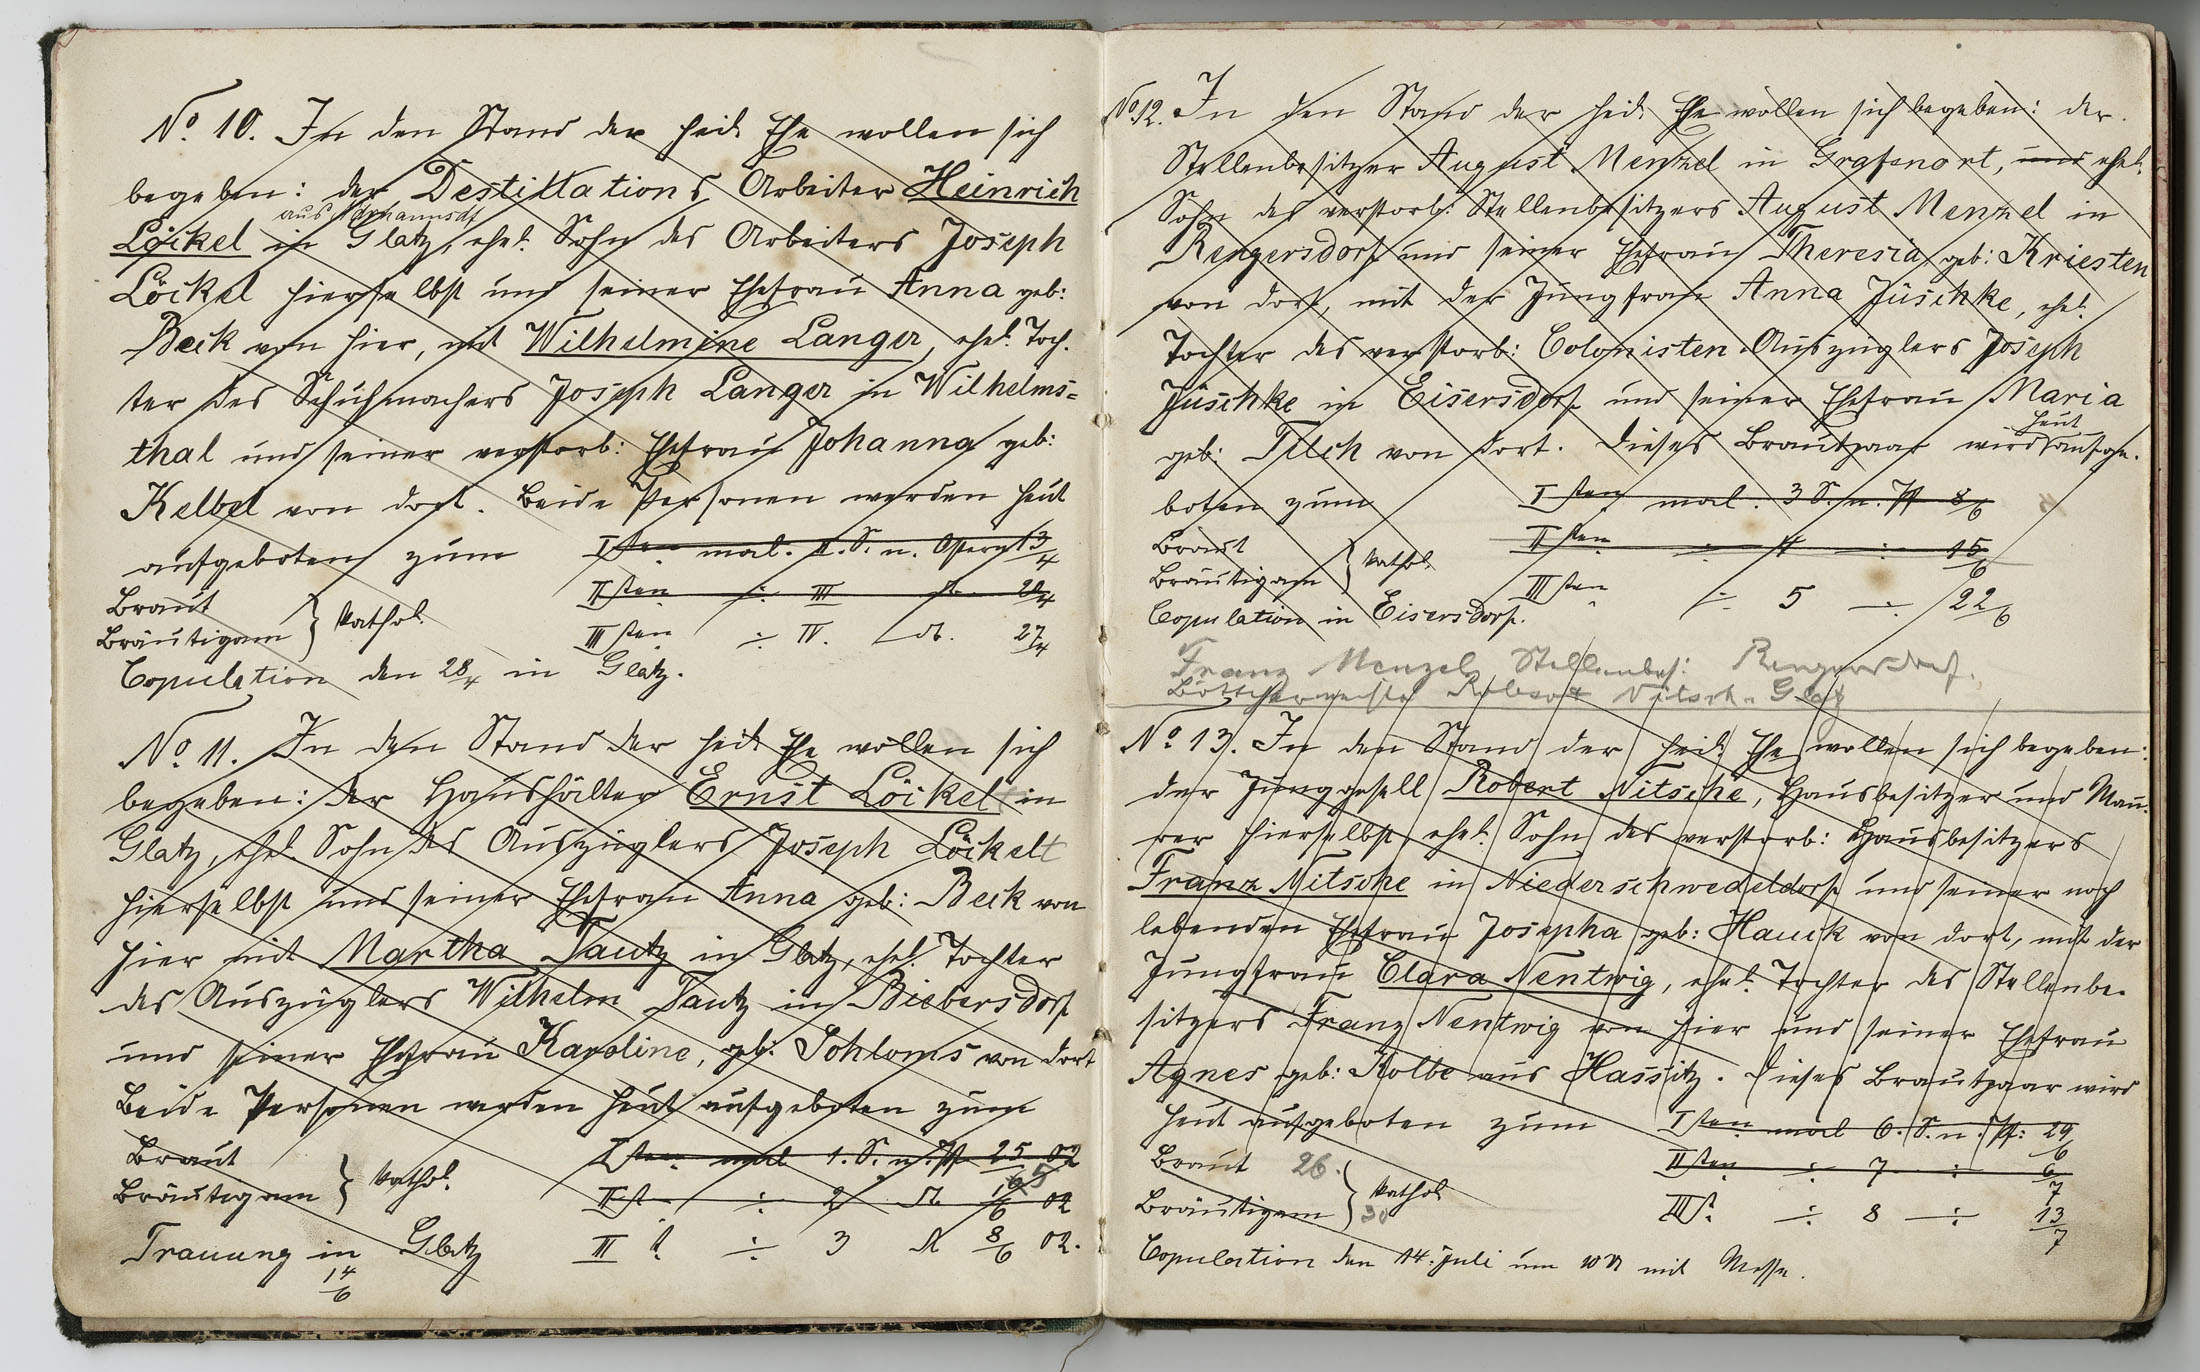 No 10. In den Stand der heil. Ehe wollen sich
begeben: der Destillations Arbeiter Heinrich
aus Neuhannsdf
Löckel in Glatz, ehel. Sohn des Arbeiters Joseph
Löckel hierselbst und seiner Ehefrau Anna geb:
Beck von hier, mit Wilhelmine Langer, ehel. Toch-
ter des Schuhmachers Joseph Langer in Wilhelms=
thal und seiner verstorb: Ehefrau Johanna geb:
Kelbel von dort. Beide Personen werden heut
aufgeboten zum Isten mal. II. S. n. Ostern 13/4
Braut IIsten ÷ III do. 20/4
Bräutigam } kathol. IIIsten ÷ IV. do. 27/4
Copulation den 28/4 in Glatz.
No 11. In den Stand der heil Ehe wollen sich
begeben: der Haushälter Ernst Löckel in
Glatz, ehel. Sohn des Auszüglers Joseph Löckelt
hierselbst und seiner Ehefrau Anna geb: Beck von
hier mit Martha Tautz in Glatz, ehel. Tochter
des Auszüglers Wilhelm Tautz in Biebersdorf
und seiner Ehefrau Karoline, geb: Schloms von dort
Beide Personen werden heut aufgeboten zum
Braut Isten mal 1. S. n. Pf 25/5 02
Bräutigam } kathol. IIst ÷ 2 do. 1/6 02
Trauung in Glatz III t. ÷ 3 do 8/6 02.
14/6
No 12. In den Stand der heil. Ehe wollen sich begeben: der
Stellenbesitzer August Menzel in Grafenort, und ehel.
Sohn des verstorb: Stellenbesitzers August Menzel in
Rengersdorf und seiner Ehefrau Theresia geb: Kriesten
von dort, mit der Jungfrau Anna Jüschke, ehel.
Tochter des verstorb: Colonisten-Auszüglers Joseph
Jüschke in Eisersdorf und seiner Ehefrau Maria
heut
geb: Tilch von dort. Dieses Brautpaar wird aufge-
boten zum Isten mal. 3 S. n. Pf 8/6
Braut IIsten ÷ 4 ÷ 15/6
Bräutigam } kathol. IIIsten ÷ 5 ÷ 22/6
Copulation in Eisersdorf.
Franz Menzel Stellenbes: Rengersdorf.
Böttchermeister Nitsch. Glatz
No 13. In den Stand der heil Ehe wollen sich begeben:
der Junggesell Robert Nitsche, Hausbesitzer und Mau-
rer hierselbst, ehel. Sohn des verstorb: Hausbesitzers
Franz Nitsche in Niederschwedeldorf und seiner noch
lebenden Ehefrau Josepha geb: Hauck von dort, mit der
Jungfrau Clara Nentwig, ehel. Tochter des Stellenbe-
sitzers Franz Nentwig von hier und seiner Ehefrau
Agnes geb: Kolbe aus Hassitz. Dieses Brautpaar wird
heut aufgeboten zum Isten mal 6. S. n. Pf: 29/6
Braut 26. IIsten ÷ 7 ÷ 6/7
Bräutigam 30 } kathol IIIt. ÷ 8 ÷ 13/7
Copulation den 14. Juli um 10 U mit Messe.